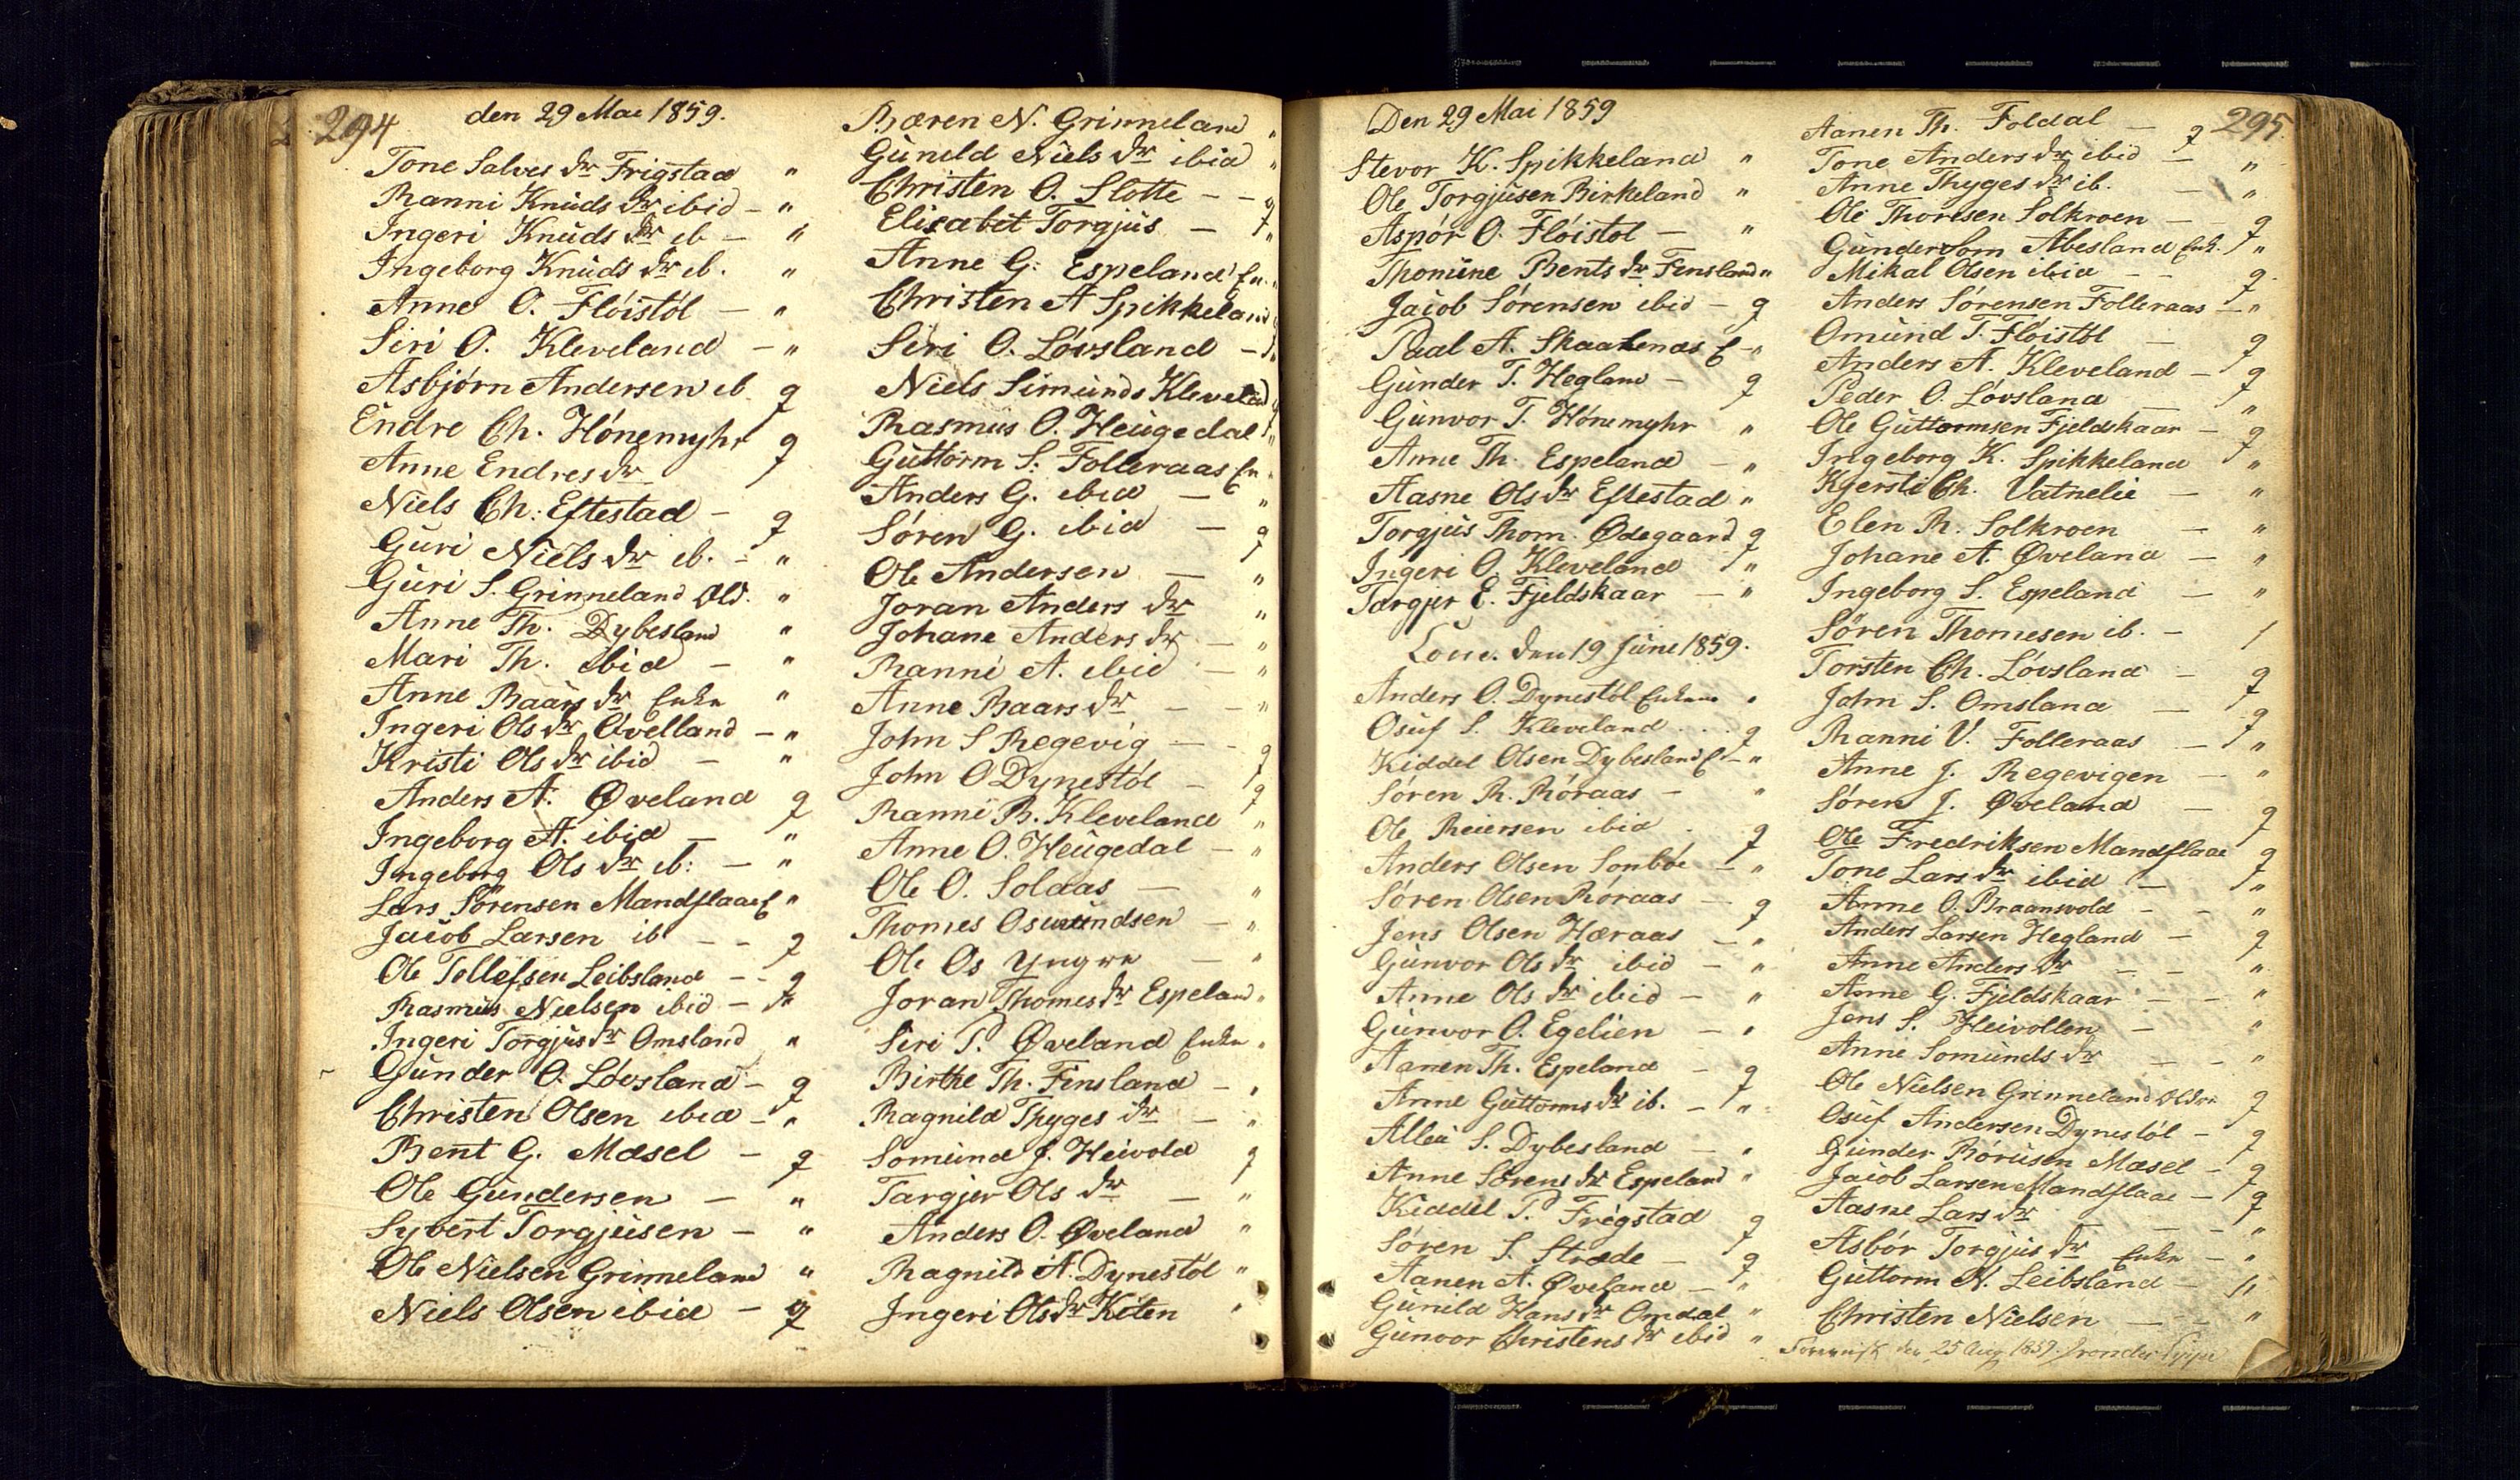 294
den 29 Mai 1859.
Tone Salves dr Frigstad "
Ranni Knuds dr ibid - "
Ingeri Knuds dr ib - "
Ingeborg Knuds dr ib. "
Anne O. Flöistöl - "
Siri O. Kleveland - "
Asbjørn Andersen ib g
Endre Ch. Hönemyhr g
Anne Endres dr
Niels Ch: Eftestad - g
Guri Niels dr ib. - "
Guri S. Grinneland Old. "
Anne Th. Dybesland "
Mari Th. ibid - "
Anne Baars dr Enke "
Ingeri Ols dr Øvelland - "
Kristi Ols dr ibid - "
Anders A. Øveland g
Ingeborg A. ibid - "
Ingeborg Ols dr ib: - "
Lars Sörensen Mandflaae E "
Jacob Larsen ib - - g
Ole Tollefsen Leibsland - - g
Rasmus Nielsen ibid - "
Ingeri Torgjus dr Omsland "
Gunder O. Lövsland - g
Christen Olsen ibid - "
Bent G. Mæsel - g
Ole Gundersen - "
Syvert Torgjusen - "
Ole Nielsen Grinneland "
Niels Olsen ibid - g
Bæren N. Grinneland "
Gunild Niels dr ibid "
Christen O. Slotte - - g
Elisabet Torgjus - "
Anne G. Espeland En. "
Christen A Spikkeland
Siri O. Lövsland - "
Niels Simunds Kleveland
Rasmus O. Heugedal "
Guttorm S. Folleraas En "
Anders G. ibid - "
Søren G. ibid - g
Ole Andersen - "
Joran Anders dr "
Johane Anders dr - "
Ranni A. ibid - "
Anne Baars dr - - "
John S Regevig - - g
John O Dynestöl - g
Ranni B. Kleveland "
Anne O. Heugedal - "
Ole O. Solaas - "
Thomes Osmundsen - "
Ole Os Yngre - "
Joran Thomes dr Espeland "
Siri P. Øveland Enke "
Birthe Th. Finsland - "
Ragnild Thyges dr - "
Somund J. Heivold g
Targjer Ols dr - "
Anders O. Øveland "
Ragnild A. Dynestöl "
Ingeri Ols dr Kiten "
Den 29 Mai 1859
Stevor K. Spikkeland "
Ole Torgjusen Birkeland "
Aspör O. Flöistöl - "
Thomine Bents dr Finsland "
Jacob Sörensen ibid - g
Paal A. Skaalenæs E - "
Gunder T. Hegland - g
Gunvor T. Hönemyhr "
Anne Th. Espeland - "
Aasne Ols dr Eftestad "
Torgjus Thom. Ødegaard g
Ingeri O. Kleveland "
Targjer E. Fjeldskaar - "
den 19 June 1859.
Anders O. Dynestöl Enkem "
Osuf S. Kleveland . . g
Kiddel Olsen Dybesland E - "
Søren R. Röraas - "
Ole Reiersen ibid . g
Anders Olsen Sonböe - "
Søren Olsen Röraas - g
Jens Olsen Hæraas - "
Gunvor Ols dr ibid - "
Anne Ols dr ibid - "
Gunvor O. Egelien - "
Aanen Th. Espeland - g
Anne Guttorms dr ib. - "
Alleu S. Dybesland - "
Anne Sörens dr Espeland "
Kiddel P. Frigstad g
Søren S. Stræde - g
Aanen A. Øveland - "
Gunild Hans dr Omdal "
Gunvor Christens dr ibid "
295.
Aanen Th. Foldal - g
Tone Anders dr ibid - "
Anne Thyges dr ib. - "
Ole Thoresen Solkroen - g
Gunder Som Abesland Enk. "
Mikal Olsen ibid - - g
Anders Sørensen Folleraas - "
Omund T. Flöistöl - g
Anders A. Kleveland - g
Peder O. Lövsland - "
Ole Guttormsen Fjeldskaar - g
Ingeborg K. Spikkeland "
Kjersti Ch. Vatnelie - "
Elen R. Solkroen - "
Johane A. Øveland - "
Ingeborg S. Espeland - "
Sören Thomesen ib. - /
Torsten Ch. Lövsland - g
John S. Omsland - g
Ranni V. Folleraas - "
Anne J. Regevigen - "
Søren J. Øveland - g
Ole Fredriksen Mandflaae g
Tone Lars dr ibid - "
Anne O. Braansvold - - "
Anders Larsen Hegland - g
Anne Anders dr - - "
Anne G. Fjeldskaar - - "
Jens S. Heivollen - "
Anne Somunds dr - - "
Ole Nielsen Grinneland Older g
Osuf Andersen Dynestöl - g
Gunder Börusen Mæsel - g
Jacob Larsen Mandflaae - g
Aasne Lars dr - - "
Asbör Torgjus dr Enke - "
Guttorm N. Leibsland - "
Christen Nielsen - - "
den 25 Aug 1859.